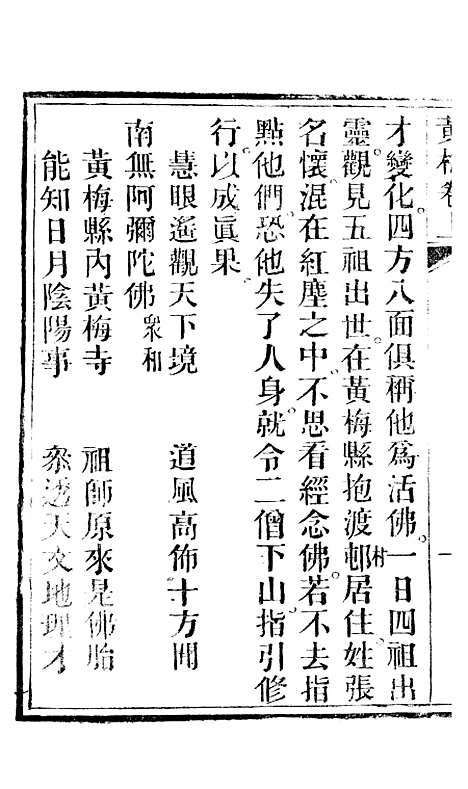 黃梅卷
才變化四方八面俱稱他爲活佛。一日四祖出
靈。觀見五祖出世。在黃梅縣抱渡邨村居住。姓張
名懷。混在紅塵之中。不思看經念佛。若不去指
點他們。恐他失了人身。就令二僧下山。指引修
行以成眞果。
慧眼遙觀天下境　道風高佈十方聞
南無阿彌陀佛衆和
黃梅縣內黃梅寺　祖師原來是佛胎
能知日月陰陽事　叅透天文地理才